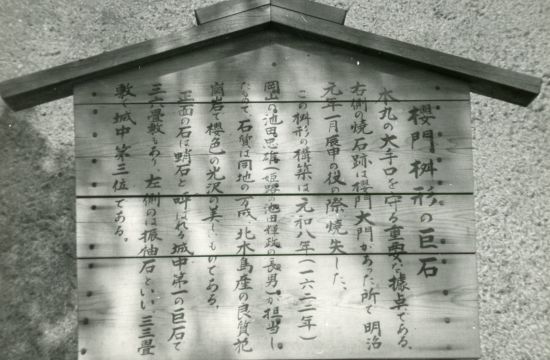 櫻門桝形の巨石
本丸の大手口を守る重要な據点である。
右側の焼石跡は櫻門大門があった所で明治
元年一月戊申の役の際焼失した。
この桝形の構築は元和八年(一六二二年)
岡山の池田忠雄(姫路の池田輝政の長男)が担当し
石質は同地の万成、北木島産の良質花
崗岩で櫻色の光沢の美しいものである。
正面の石は蛸石と呼ばれる城中第一の巨石で
三六畳敷もあり、左側のは振袖石といい三三畳
敷で城中第三位である。